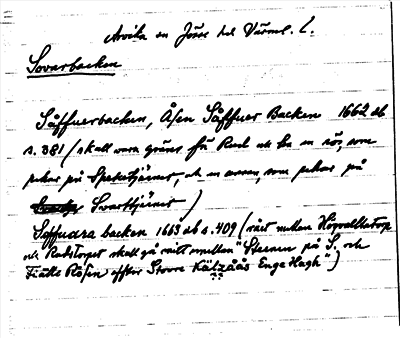 Arvika sn Jösse hd Värml. L.
Sovarbacken
Såffuerbacken, Åsen Såffuer Backen 1662 db
s. 381 (skall wara gräns frå Rud ås be en rör, som
pekar på Speketjärnet, och en annan, som pekar på
Svarttjärnet)
Soffuara backen 1663 db s. 409 (rået mellan
och Rudstorpet skall gå rätt emellan "Stenen på S. och
Fiälls Råsen effter Stoore Kålzåås Enge Hagh")